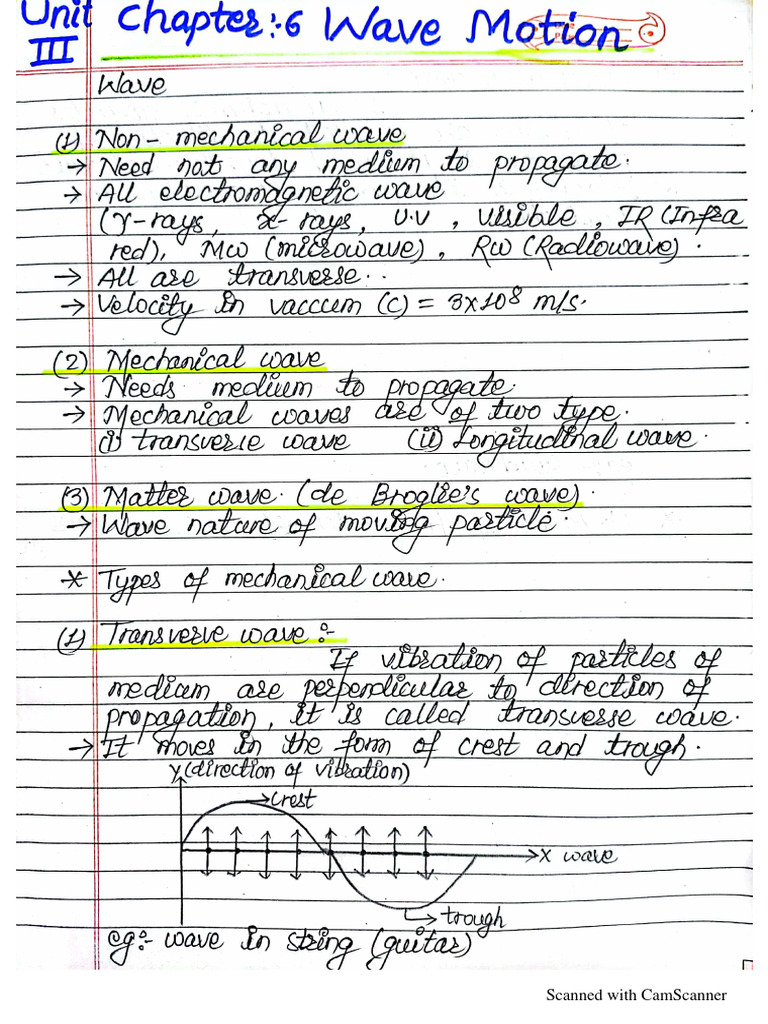 Unit Chapter:-6 Wave Motion
III
Wave
(1) Non-mechanical wave
→ Need not any medium to propagate.
→ All electromagnetic wave
(γ-rays, x-rays, U.V, visible, IR (Infra
red), MW (microwave), RW (Radiowave).
→ All are transverse..
→ Velocity in vaccum (c) = 3x10⁸ m/s.
(2) Mechanical wave
→ Needs medium to propagate.
→ Mechanical waves are of two type.
(i) transverse wave (ii) Longitudinal wave.
(3) Matter wave. (de Broglie's wave).
→ Wave nature of moving particle.
* Types of mechanical wave.
(1) Transverve wave:-
If vibration of particles of
medium are perpendicular to direction of
propagation, it is called transverse wave.
→ It moves in the form of crest and trough.
Y (direction of vibration)
→ crest
→ X wave
→ trough
eg:- wave in string (guitar)
Scanned with CamScanner